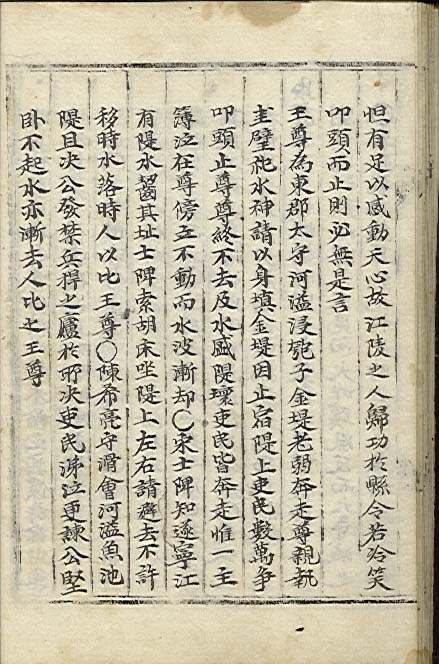 怛有足以感動天心故江陵之人歸功於縣令若冷笑
叩頭而止則必無是言
王尊為東郡太守河溢浸瓠子金堤老弱奔走尊親執
圭璧祀水神請以身填金堤因止宿隄上吏民數萬爭
叩頭止尊尊終不去及水盛隄壞吏民皆奔走惟一主
簿泣在尊傍立不動而水波漸却○宋士隁知遂寧江
有隄水齧其址士隁索胡床坐隄上左右請避去不許
移時水落時人以比王尊○陳希亮守滑會河溢魚池
隄且决公發禁兵捍之廬於所决吏民涕泣更諫公堅
卧不起水亦漸去人比之王尊